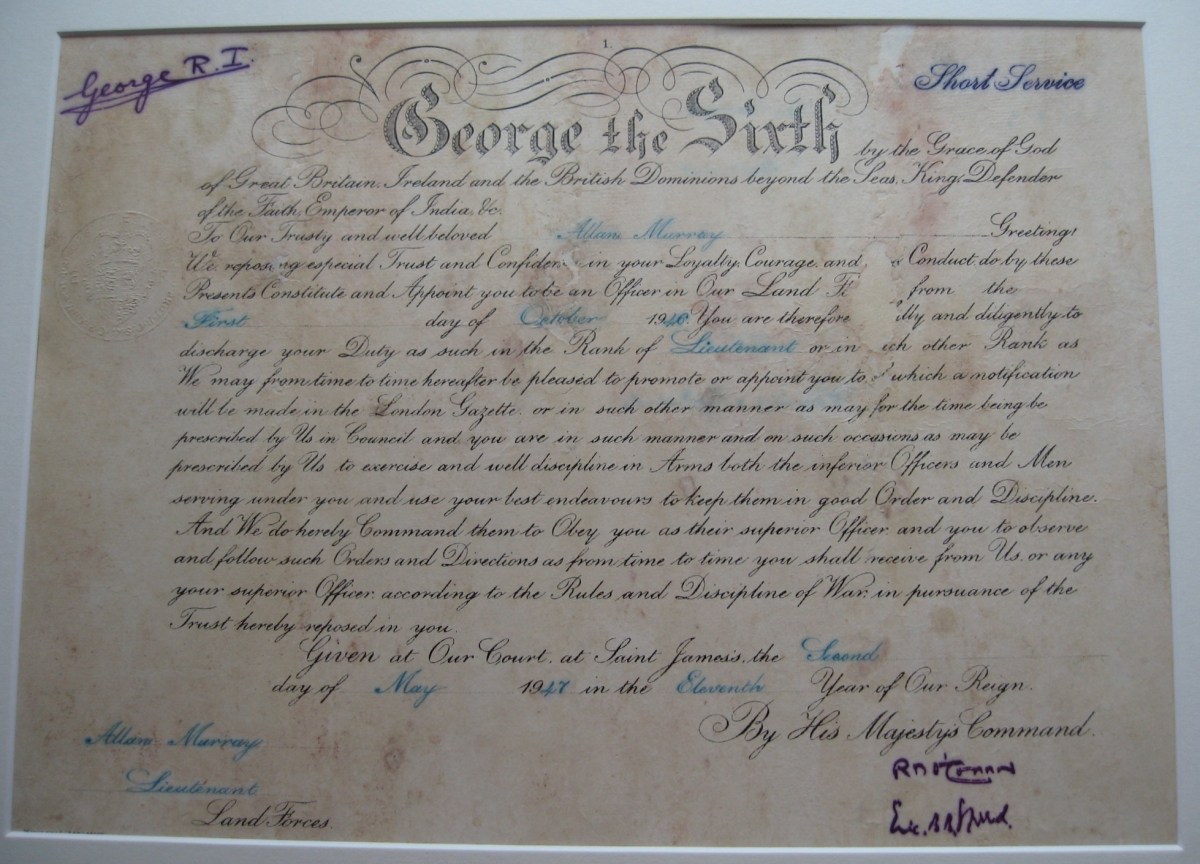 1.
George R.I.
Short Service
George the Sixth by the Grace of God
of Great Britain, Ireland and the British Dominions beyond the Seas, King, Defender
of the Faith, Emperor of India, &c.
To Our Trusty and well beloved Allan Murray Greeting!
We, reposing especial Trust and Confiden in your Loyalty, Courage, and Conduct, do by these
Presents Constitute and Appoint you to be an Officer in Our Land F from the
First day of October 1946 You are therefore lly and diligently to
discharge your Duty as such in the Rank of Lieutenant or in ch other Rank as
We may from time to time hereafter be pleased to promote or appoint you to, of which a notification
will be made in the London Gazette, or in such other manner as may for the time being be
prescribed by Us in Council, and you are in such manner and on such occasions as may be
prescribed by Us to exercise and well discipline in Arms both the inferior Officers and Men
serving under you and use your best endeavours to keep them in good Order and Discipline.
And We do hereby Command them to Obey you as their superior Officer, and you to observe
and follow such Orders and Directions as from time to time you shall receive from Us, or any
your superior Officer, according to the Rules and Discipline of War, in pursuance of the
Trust hereby reposed in you.
Given at Our Court, at Saint James's, the Second
day of May 1947 in the Eleventh Year of Our Reign.
By His Majesty's Command.
Allan Murray
Lieutenant
Land Forces.